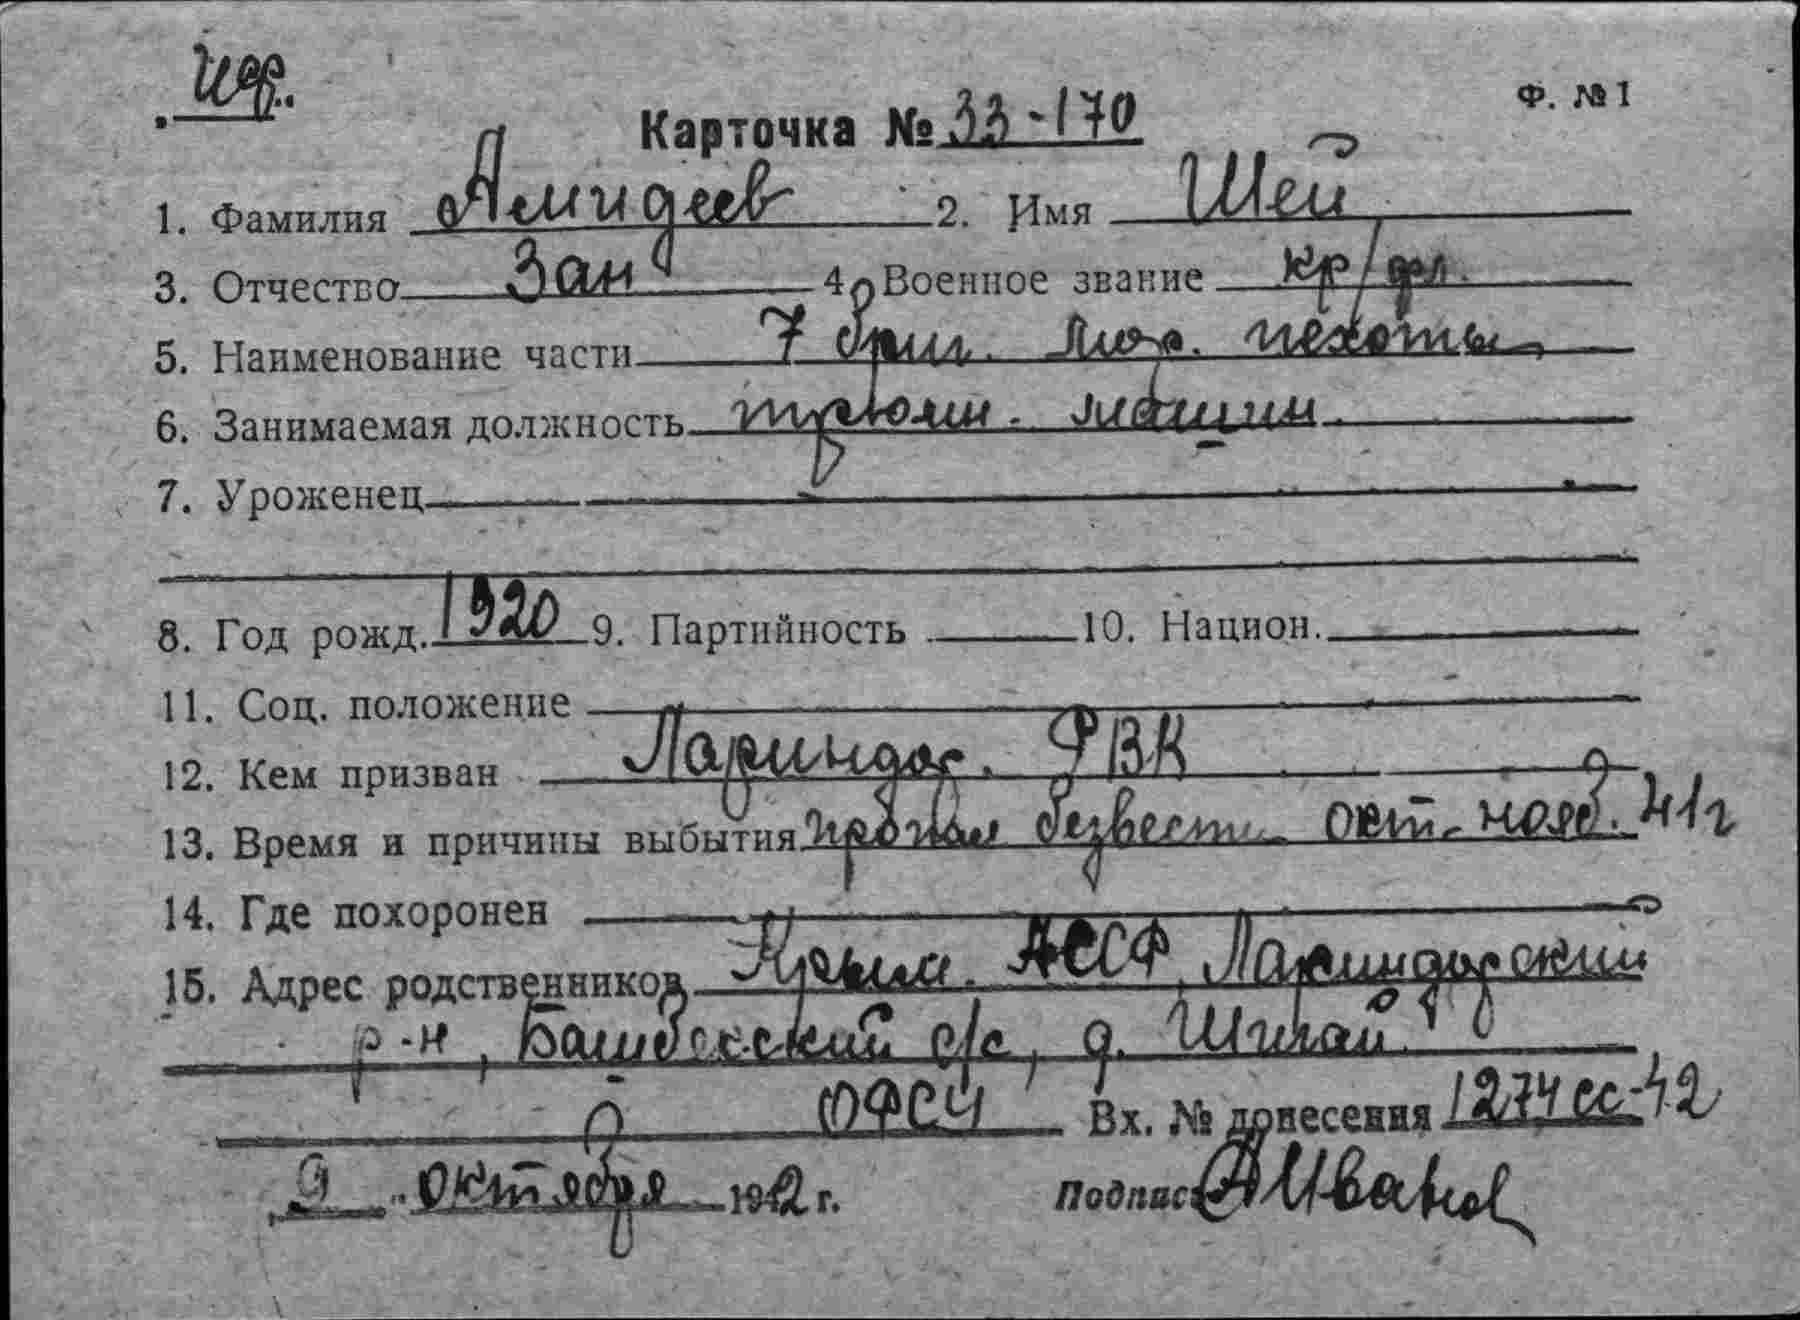 Карточка № 33-170 Ф. №1
1. Фамилия Амидеев 2. Имя Шей
3. Отчество Зан 4. Военное звание кр/фл.
5. Наименование части 7 бриг. мор. пехоты
6. Занимаемая должность трюмн. машин.
7. Уроженец
8. Год рожд. 1920 9. Партийность 10. Национ.
11. Соц. положение
12. Кем призван Лариндор. РВК
13. Время и причины выбытия пропал безвести окт-нояб. 41г
14. Где похоронен
15. Адрес родственников Крым. АССР, Лариндорский
р-н, с/с, д. Шигай
ОФСЧ Вх. № донесения 1274сс-42
9 " октября 1942 г. Подпись АИванов